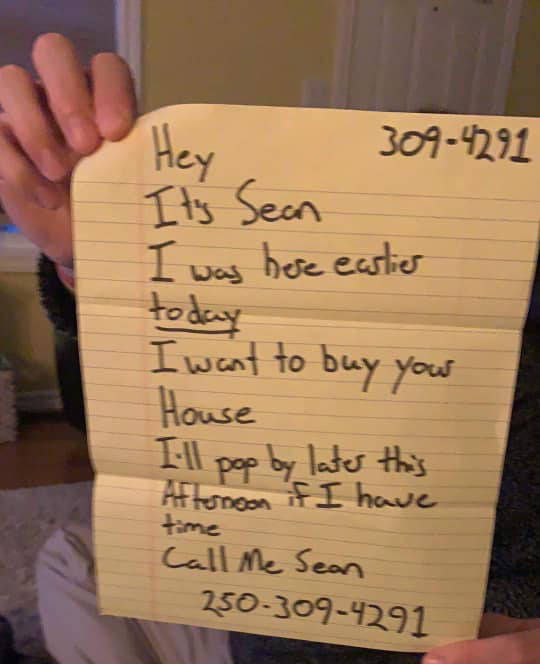 309-4291
Hey
It's Sean
I was here earlier
today
I want to buy your
House
I'll pop by later this
Afternoon if I have
time
Call Me Sean
250-309-4291